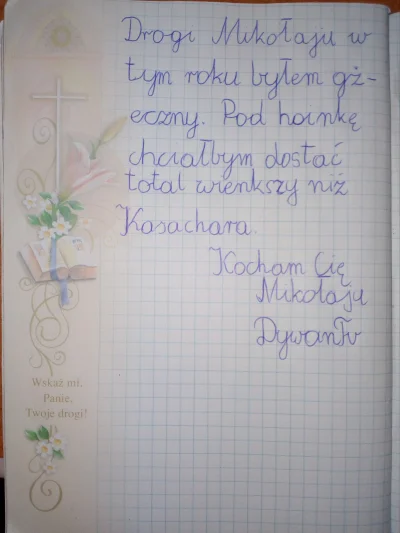 Drogi Mikołaju w
tym roku byłem gż-
eczny. Pod hoinkę
chciałbym dostać
total wienkszy niż
Kasachara.
Kocham Cię
Mikołaju
DywanTv
Wskaż mi,
Panie,
Twoje drogi!